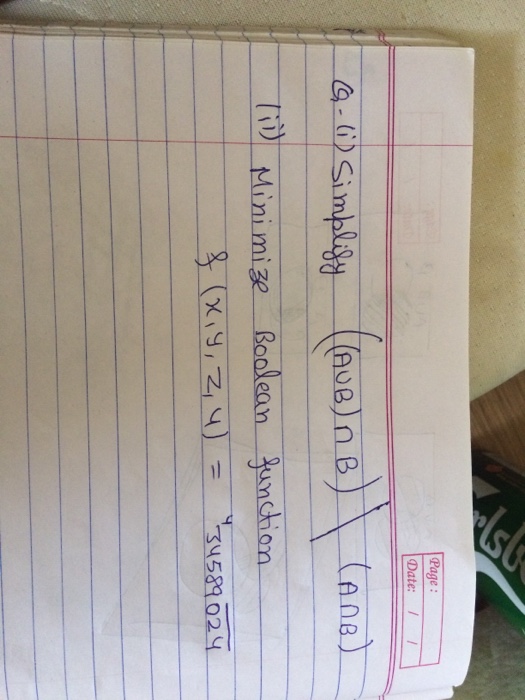 Page:
Date: / /
Q-(i) Simplify ((A∪B)∩B) \ (A∩B)
(ii) Minimize Boolean function
f (x,y,z,4) =